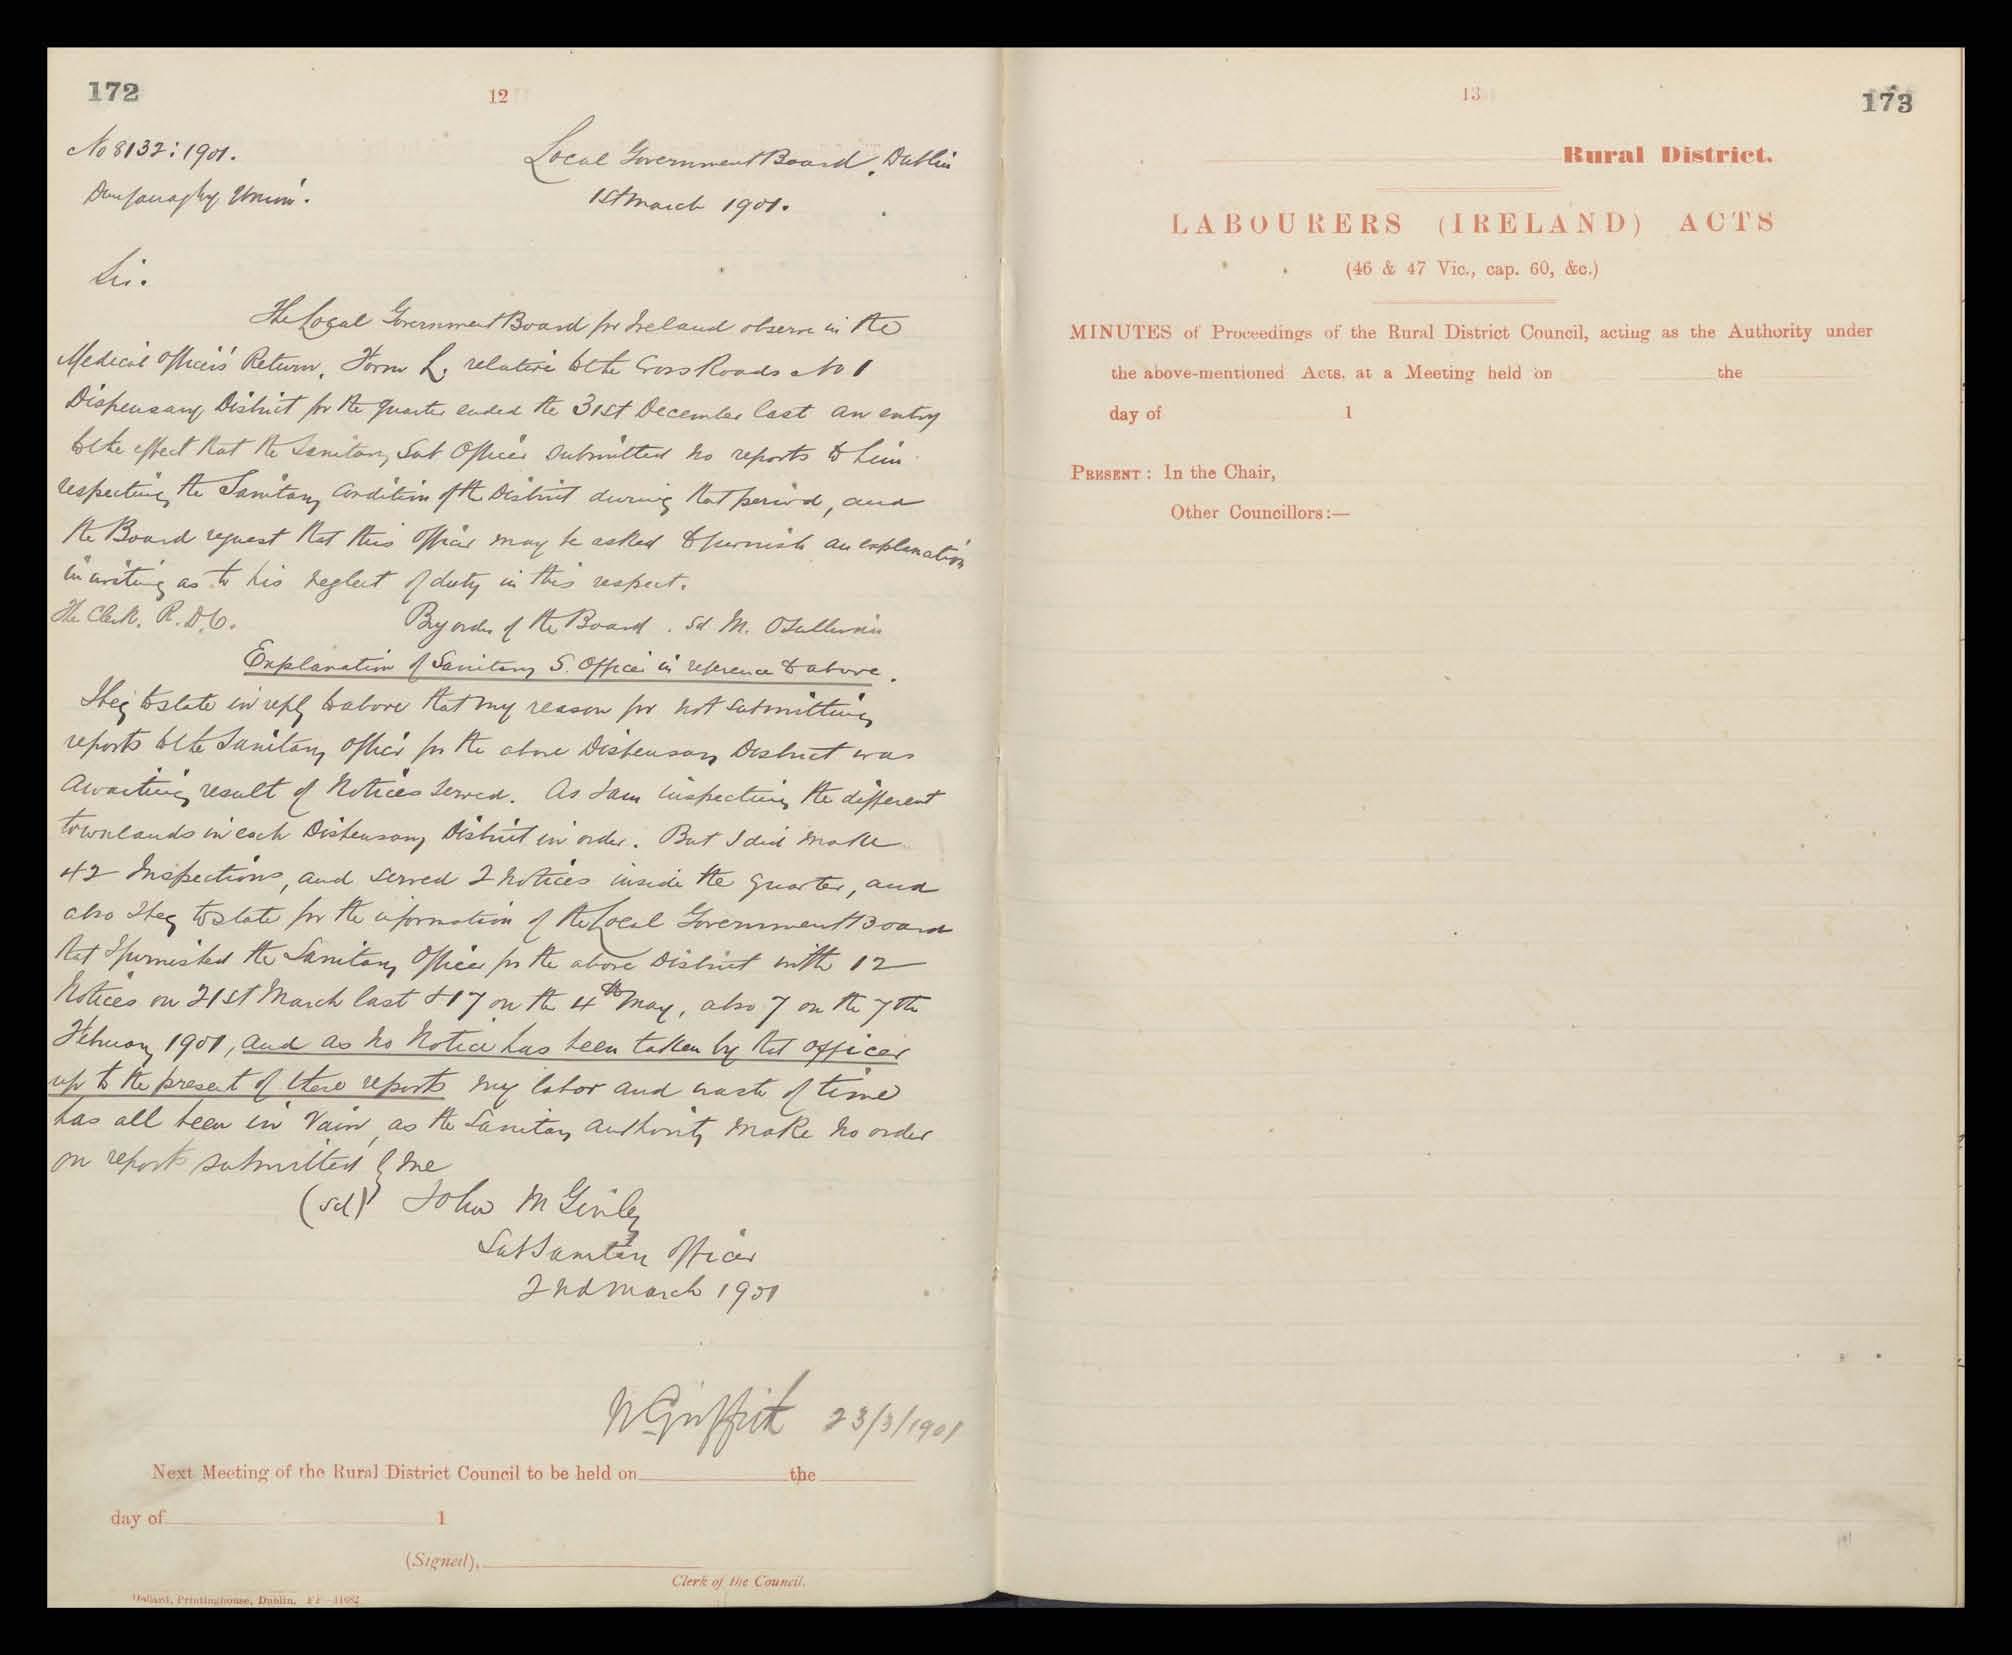 172
12
No 8132:1901.
Local Government Board, Dublin
Dunfanaghy Union.
1st March 1901.
Sir.
The Local Government Board for Ireland observe in the
Medical Officer's Return, Form L. relative to the Cross Roads No 1
Dispensary District for the quarter ended the 31st December last an entry
to the effect that the Sanitary Sub Officer submitted no reports to him
respecting the Sanitary Condition of the District during that period, and
the Board request that this Officer may be asked to furnish an explanation
in writing as to his neglect of duty in this respect.
The Clerk. R.D.C.
By order of the Board. Sd. M. OSullivan
Explanation of Sanitary S. Officer in reference to above.
I beg to state in reply to above that my reason for not submitting
reports to the Sanitary Officer for the above Dispensary District was
awaiting result of Notices served. As I am inspecting the different
townlands in each Dispensary District in order. But I did make
42 Inspections, and served 2 Notices inside the quarter, and
also I beg to state for the information of the Local Government Board
that I furnished the Sanitary Officer for the above District with 12
Notices on 21st March last & 17 on the 4th May, also 7 on the 7th
February 1901, and as no Notice has been taken by that officer
up to the present of these reports my labor and waste of time
has all been in vain, as the Sanitary Authority make no order
on reports submitted by me
(sd) John McGinley
Sub Sanitary Officer
2nd March 1901
Griffith 23/3/1901
Next Meeting of the Rural District Council to be held on the
day of 1
(Signed),
Clerk of the Council.
Dollard, Printinghouse, Dublin.
13
173
Rural District.
LABOURERS (IRELAND) ACTS
(46 & 47 Vic., cap. 60, &c.)
MINUTES of Proceedings of the Rural District Council, acting as the Authority under
the above-mentioned Acts, at a Meeting held on the
day of 1
PRESENT: In the Chair,
Other Councillors:—